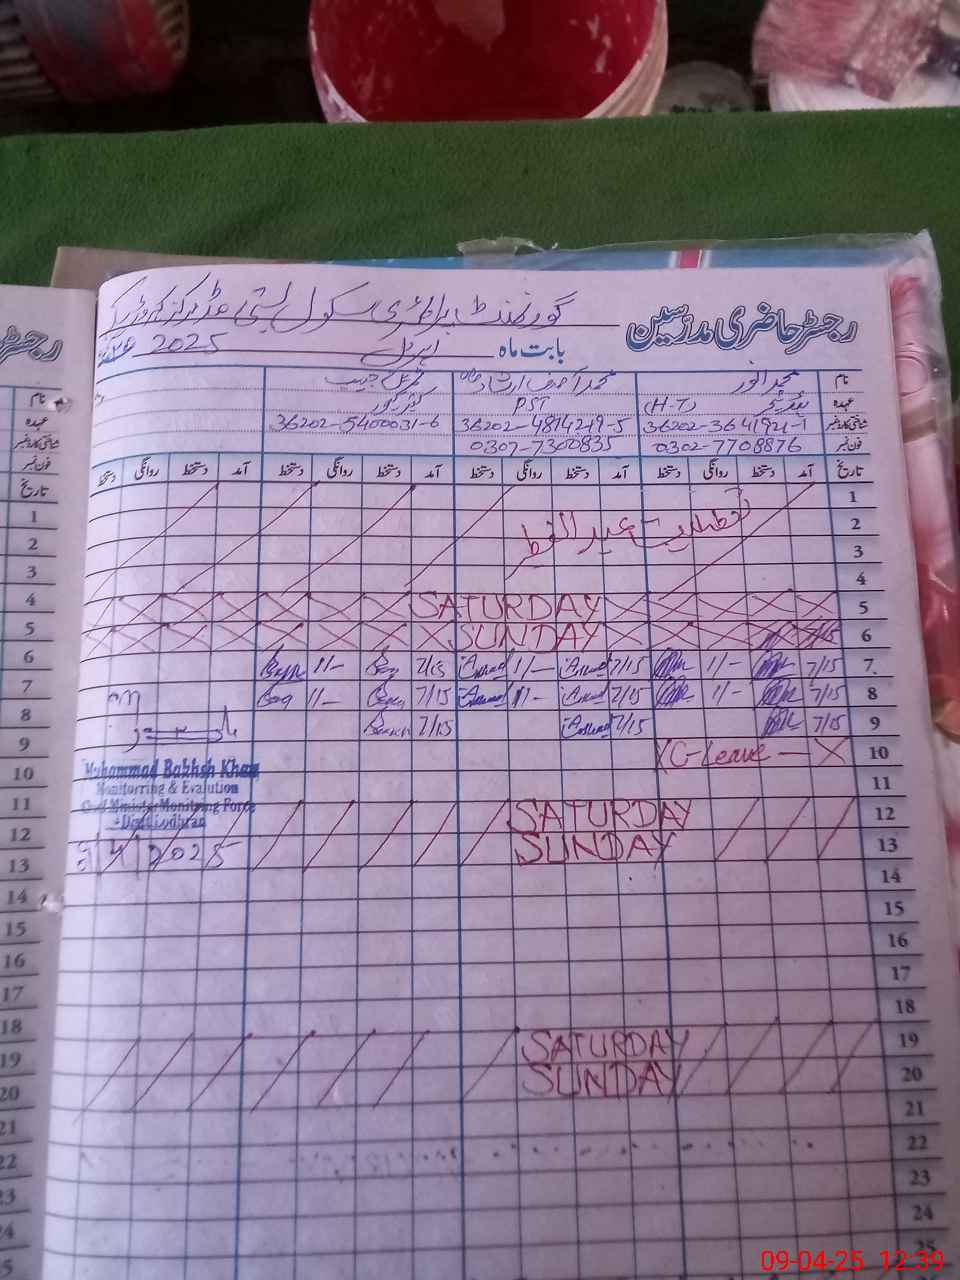 رجسٹر حاضری مدرسین
گورنمنٹ پرائمری سکول بستی
بابت ماہ اپریل 2025
نام محمد انور محمد آصف ارشاد
عہدہ (H-T) PST
شناختی کارڈ نمبر 36202-3641921-1 36202-4814249-5 36202-5400031-6
فون نمبر 0302-7708876 0307-7300835
تاریخ آمد دستخط روانگی دستخط آمد دستخط روانگی دستخط آمد دستخط روانگی دستخط آمد دستخط روانگی دستخط
1
2 تعطیلات عید الفطر
3
4
5 SATURDAY
6 SUNDAY 7/15
7 7/15 1/- 7/15 1/- 7/15 1/-
8 7/15 1/- 7/15 1/- 7/15 1/-
9 7/15 7/15 7/15
10 C-Leave
11
12 SATURDAY
13 SUNDAY
14
15
16
17
18
19 SATURDAY
20 SUNDAY
21
22
23
24
25
Muhammad Bakhsh Khan
Monitorring & Evalution
Chief Minister Monitring Force
Distt Lodhran
9/4/2025
رجسٹر
نام
عہدہ
شناختی کارڈ نمبر
فون نمبر
تاریخ
1
2
3
4
5
6
7
8
9
10
11
12
13
14
15
16
17
18
19
20
21
22
23
24
25
09-04-25 12:39